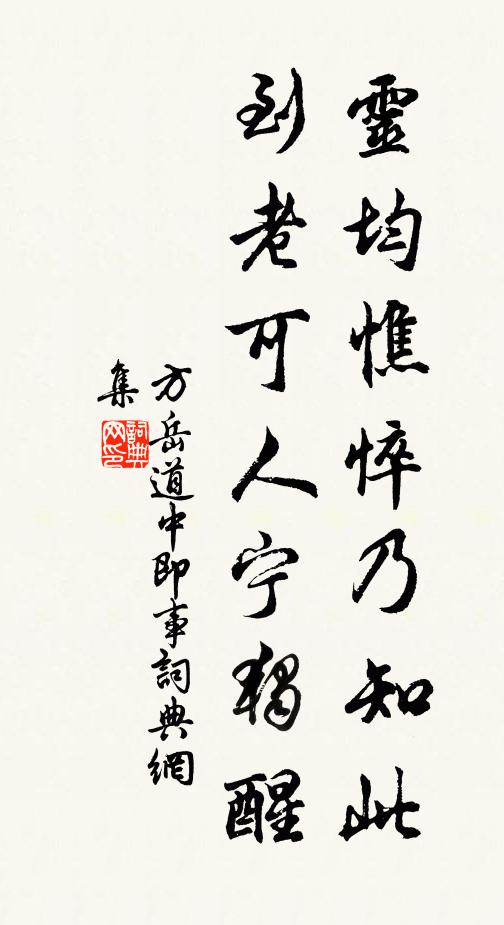 靈均憔悴乃知此
到老可人宁獨醒
方岳道中即事詞典網
集
詞典网印